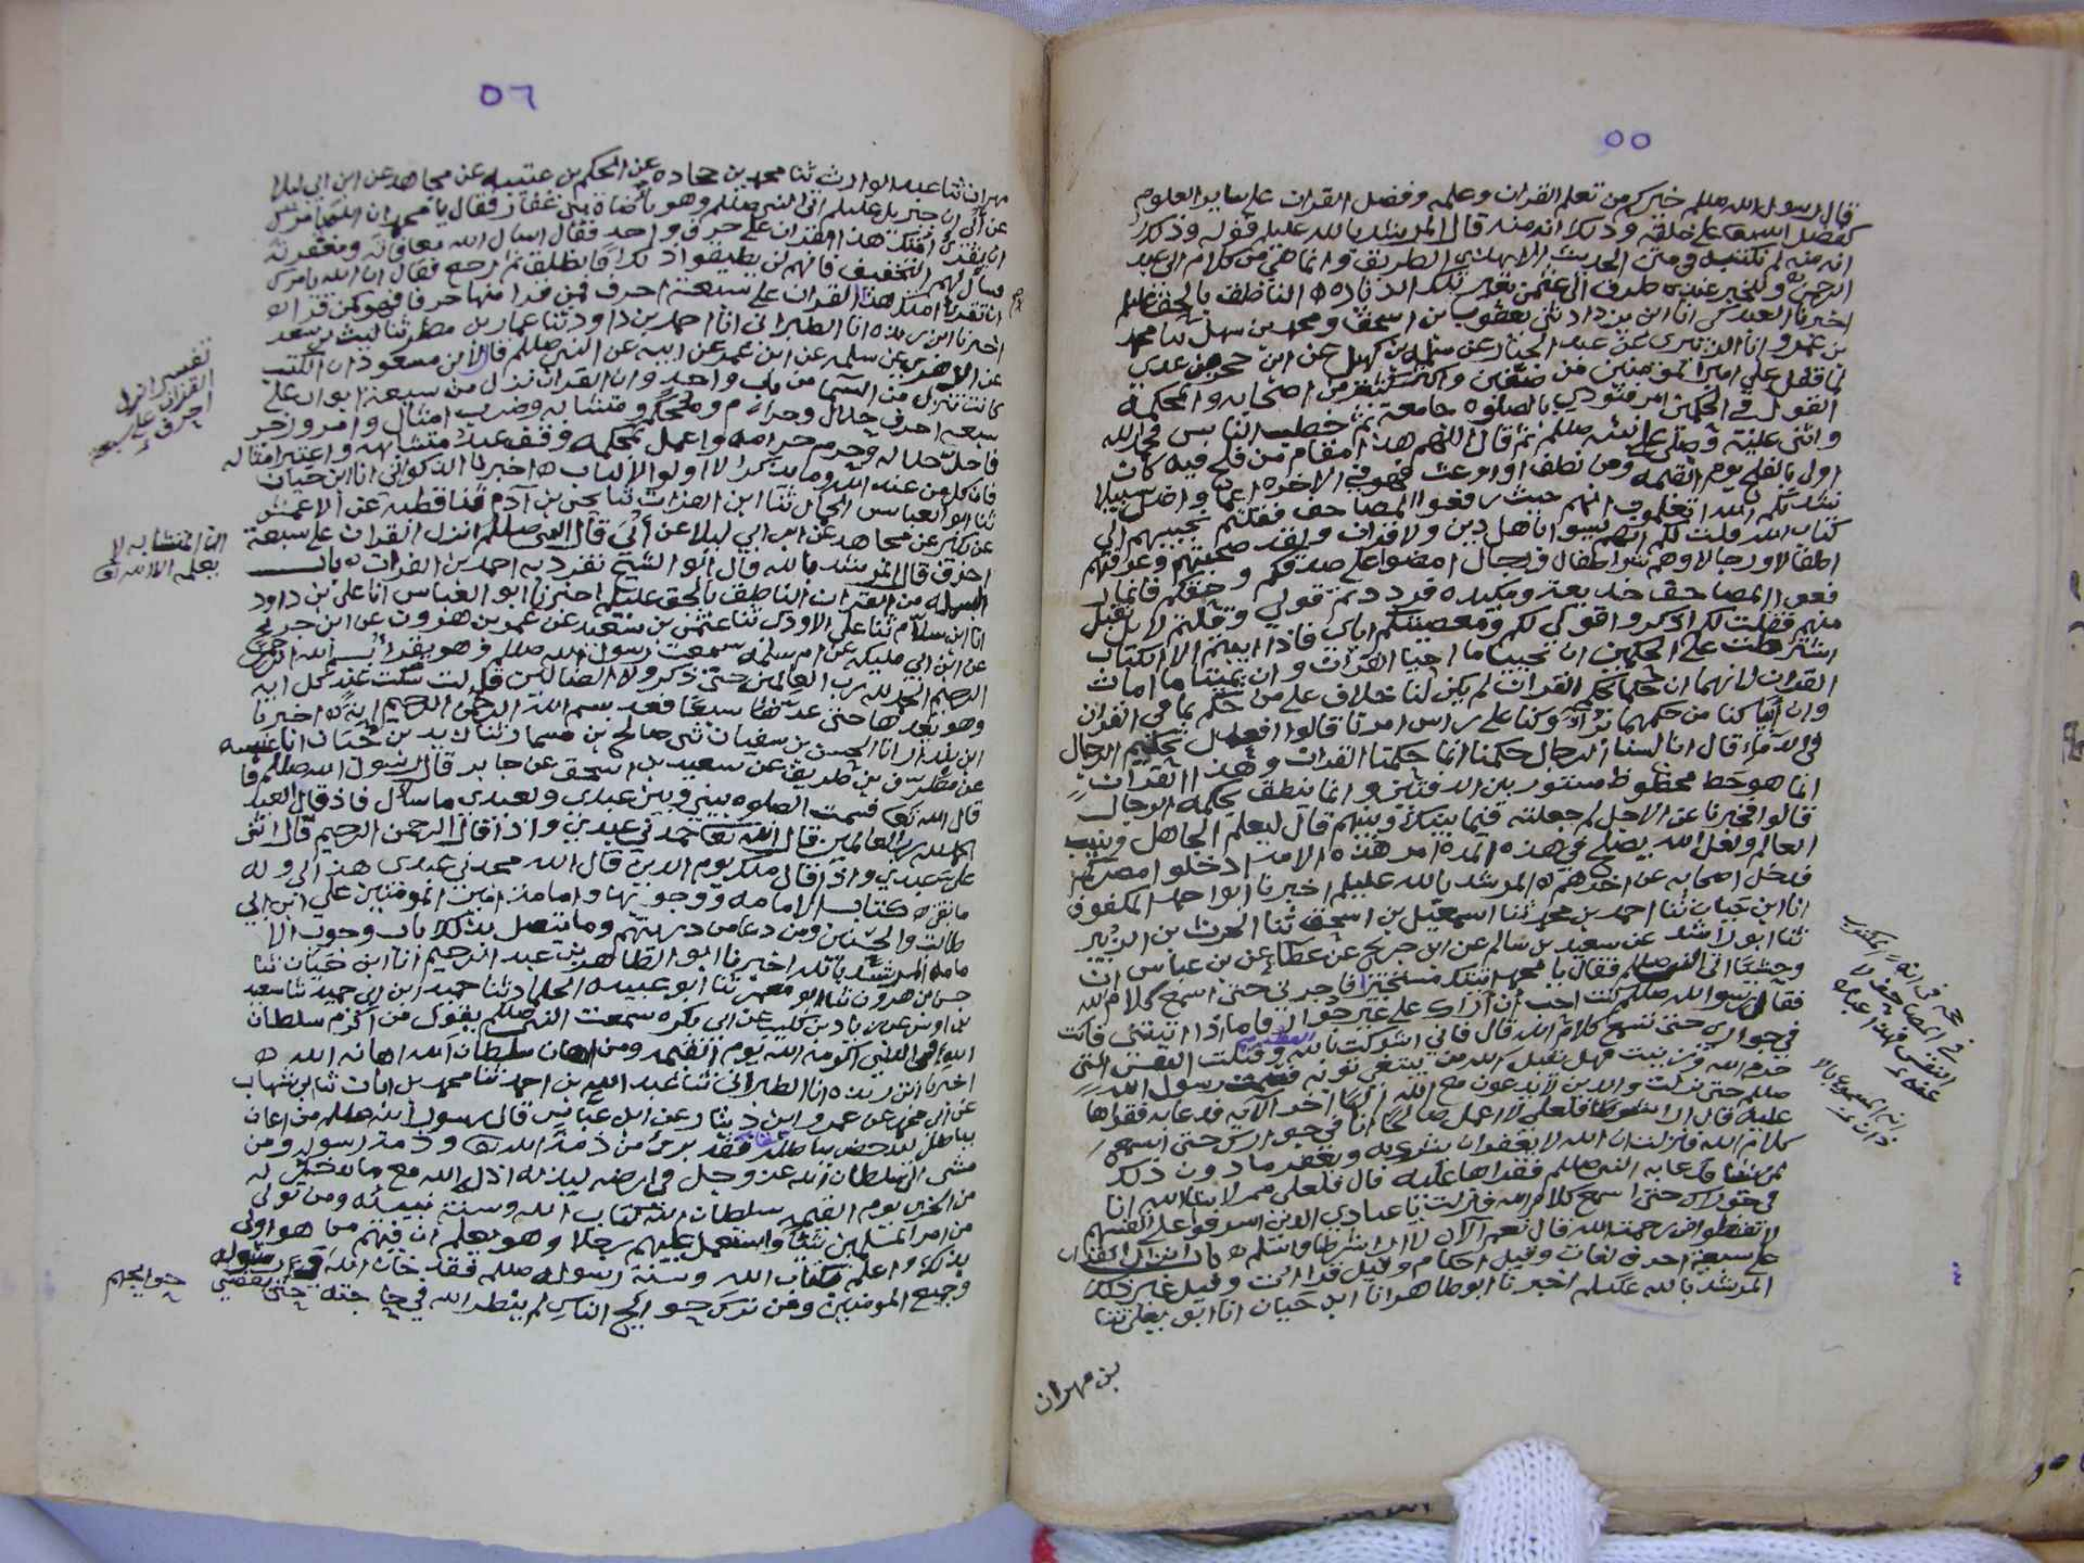 ٥٥
قال رسول الله صللم خيركم من تعلم القران وعلمه وفضل القران على ساير العلوم
كفضل الله على خلقه وذلك انه منه قال المرشد بالله عليلم قوله وذلك
انه منه لم نكتبه في متن الحديث الا بهذا الطريق وانما هي من كلام ابي عبد
الرحمن
اخبرنا انا ابن
بن عمرو عن عبد الجبار عن سلمه بن كهيل عن ابن حجر بن عدي
لما قفل علي امير المومنين من صفين واكثر اصحابه والمحكمة
القول في الحكمين امر فنودي بالصلوه جامعة ثم خطب الناس فحمد الله
واثنى عليه وصلى على نبيه صللم ثم قال اللهم هذا مقام من فلج فيه كان
اولى بالفلج يوم القيمه ومن نطف او اوعث فهو في الاخره اعما واضل سبيلا
نشدتكم الله اتعلمون انهم حيث رفعوا المصاحف فقلتم نجيبهم الى
كتاب الله قلت لكم انهم ليسوا باهل دين ولا قران ولقد صحبتهم وعرفتهم
اطفالا ورجالا وهم شر اطفال ورجال امضوا على صدقكم وحقكم فانما ر
فعوا المصاحف خديعة ومكيده فرددتم قولي وقلتم لا بل نقبل
منهم فقلت لكم اذكروا قولي لكم ومعصيتكم اياي فاذا ابيتم الا الكتاب
اشترطت على الحكمين ان يحييا ما احيا القران وان يميتا ما امات
القران فانهما ان حكما بحكم القران لم يكن لنا خلاف على من حكم بما في القران
وان ابيا كنا من حكمهما براء وكنا على راس امرنا قالوا افعدل تحكيم الرجال
في الدماء قال انا لسنا الرجال حكمنا انما حكمنا القران وهذا القران
انما هو خط مخطوط مستور بين الدفتين وانما ينطق بحكمه الرجال
قالوا فخبرنا عن الاجل لم جعلته فيما بينك وبينهم قال ليعلم الجاهل ويثبت
العالم ولعل الله يصلح في هذه المدة امر هذه الامه ادخلوا مصركم
فدخل اصحابه عن اخرهم ه المرشد بالله عليلم اخبرنا ابو احمد المكفوف
انا ابن حيان ثنا احمد بن محمد ثنا اسمعيل بن اسحق ثنا الحرث بن الزبير
ثنا ابو راشد عن سعيد بن سالم عن ابن جريج عن عطا عن بن عباس ان
وحشيا اتى النبي صللم فقال يا محمد اتيتك مستجيرا فاجرني حتى اسمع كلام الله
فقال رسول الله صللم كنت احب ان اراك على غير جوار فاما اذا اتيتني فانت
في جواري حتى تسمع كلام الله قال فاني اشركت بالله وقتلت النفس التي
حرم الله وزنيت فهل يقبل الله من توبه فصمت رسول الله
صللم حتى نزلت والذين لا يدعون مع الله الها اخر الايه فدعا به فقراها
عليه قال ارا شرطا فلعلي لا اعمل صالحا انا في جوارك حتى اسمع
كلام الله فنزلت ان الله لا يغفر ان يشرك به ويغفر ما دون ذلك
لمن يشا فدعا به النبي صللم فقراها عليه قال فلعلي ممن لا يشا الله انا
في جوارك حتى اسمع كلام الله فنزلت يا عبادي الذين اسرفوا على انفسهم
لا تقنطوا من رحمة الله قال نعم الان لا ارا شرطا واسلم ه باب انزل القران
على سبعة احرف لغات وقيل احكام وقيل قراات وقيل غير ذلك
المرشد بالله عليلم اخبرنا ابو طاهر انا ابن حيان انا ابو يعلى ثنا
بن مهران
٥٦
مهران ثنا عبد الوارث ثنا محمد بن جحاده عن الحكم بن عتيبه عن مجاهد عن ابن ابي ليلا
عن ابي ان جبريل عليلم اتى النبي صللم وهو باضاة بني غفار فقال يا محمد ان الله يامرك
ان تقري امتك هذا القران على حرف واحد فقال اسال الله معافاته ومغفرته
وسال لهم التخفيف فانهم لن يطيقوا ذلك فانطلق ثم رجع فقال ان الله يامرك
ان تقري امتك هذا القران على سبعة احرف فمن قرا منها حرفا فهو كمن قرا
اخبرنا ابن ريذه انا الطبراني انا احمد بن داود ثنا عمار بن مطر ثنا ليث بن سعد
عن الزهري عن سلمه عن ابن عمر عن ابيه عن النبي صللم قال لابن مسعود ان الكتب
كانت تنزل من السما من باب واحد وان القران نزل من سبعة ابواب على
سبعه احرف حلال وحرام ومحكم ومتشابه وضرب امثال وامر وزجر
فاحل حلاله وحرم حرامه واعمل بمحكمه وقف عند متشابهه واعتبر امثاله
فان كل من عند الله وما يذكر الا اولوا الالباب ه اخبرنا الذكواني انا ابن حيان
ثنا ابو العباس الجمال ثنا ابن الفرات ثنا يحي بن آدم ثنا قطبة عن الاعمش
عن مجاهد عن ابن ابي ليلا عن ابي قال النبي صللم انزل القران على سبعة
احرف قال المرشد بالله قال ابو الشيخ تفرد به احمد بن الفرات ه باب
البسمله من القران الناطق بالحق عليلم اخبرنا ابو العباس انا علي بن داود
انا ابن سلام ثنا علي الاودي ثنا عثمن بن سعيد عن عمر بن هرون عن ابن جريج
عن ابن ابي مليكه عن ام سلمه سمعت رسول الله صللم وهو يقرا بسم الله الرحمن
الرحيم الحمد لله رب العالمين حتى ذكر ولا الضالين
وهو يعدها حتى عد سبعا فعد بسم الله الرحمن الرحيم ايه ه اخبرنا
ثنا زيد بن حباب انا عنبسه
عن مطرف بن طريف عن سعيد بن اسحق عن جابر قال رسول الله صللم قا
قال الله تعا قسمت الصلوه بيني وبين عبدي ولعبدي ما سال فاذ قال العبد
الحمد لله رب العالمين قال الله تعا حمدني عبدي واذا قال الرحمن الرحيم قال اثنى
علي عبدي واذا قال ملك يوم الدين قال الله مجدني عبدي هذا لي وله
ما بقي ه كتاب الامامه ووجوبها وامامة امير المومنين علي ابن ابي
طالب والحسنين ومن دعا من ذريتهم وما يتصل بذلك باب وجوب الا
مامه المرشد بالله اخبرنا ابو الطاهر بن عبد الرحيم انا ابن حيان ثنا
حسن بن هرون ثنا ابو معمر ثنا ابو عبيده الحداد ثنا حميد ابن ابي حميد ثنا سعد
بن اوس عن زياد بن كليب عن ابي بكره سمعت النبي صللم يقول من اكرم سلطان
الله في الدنيا اكرمه الله يوم القيمه ومن اهان سلطان الله اهانه الله ه
اخبرنا ابن ريذه انا الطبراني ثنا عبد الله بن احمد ثنا محمد بن ابان ثنا بن شهاب
عن ابي محمد عن عمرو ابن دينار عن ابن عباس قال رسول الله صللم من اعان
بباطل ليدحض بباطله حقا فقد برئ من ذمة الله وذمة رسوله ومن
مشى الى سلطان الله عز وجل في ارضه ليذله اذله الله مع ما يدخر له
من الخزي يوم القيمه سلطان الله كتاب الله وسنة نبيه ومن تولى
من امر المسلمين شيئا واستعمل عليهم رجلا وهو يعلم ان فيهم من هو اولى
بذلك واعلم بكتاب الله وسنة رسوله صللم فقد خان الله ورسوله
وجميع المومنين ومن ترك حوايج الناس لم ينظر الله في حاجته حتى يقضي حوايجهم
تفسير انزل
القران على سبعة
احرف
ان المتشابه لا
يعلمه الا الله تعا